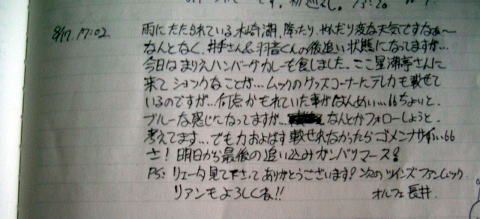 8/17. 17:02 雨にたたられている木崎湖、降たり、やんだり変な天気ですなぁ〜
なんとなく、井手さん&羽音くんの後追い状態になってますが…
今日はまりえハンバーグカレーを食しました。ここ星湖亭さんに
来てショックなことが…ムックのグッズコーナーにテレカも載せて
いるのですが、何点かもれていた事がはんめい…66ちょいと、
ブルーな感じになってますが… なんとかフォローしようと
考えてます…でも力およばず載せれなかったらゴメンナサイ66
さ!明日から最後の追い込みガンバリマース!
PS: リエータ見て下さってありがとうございます?次のツインズファンムック
リアンもよろしくね!! オルフェ 長井